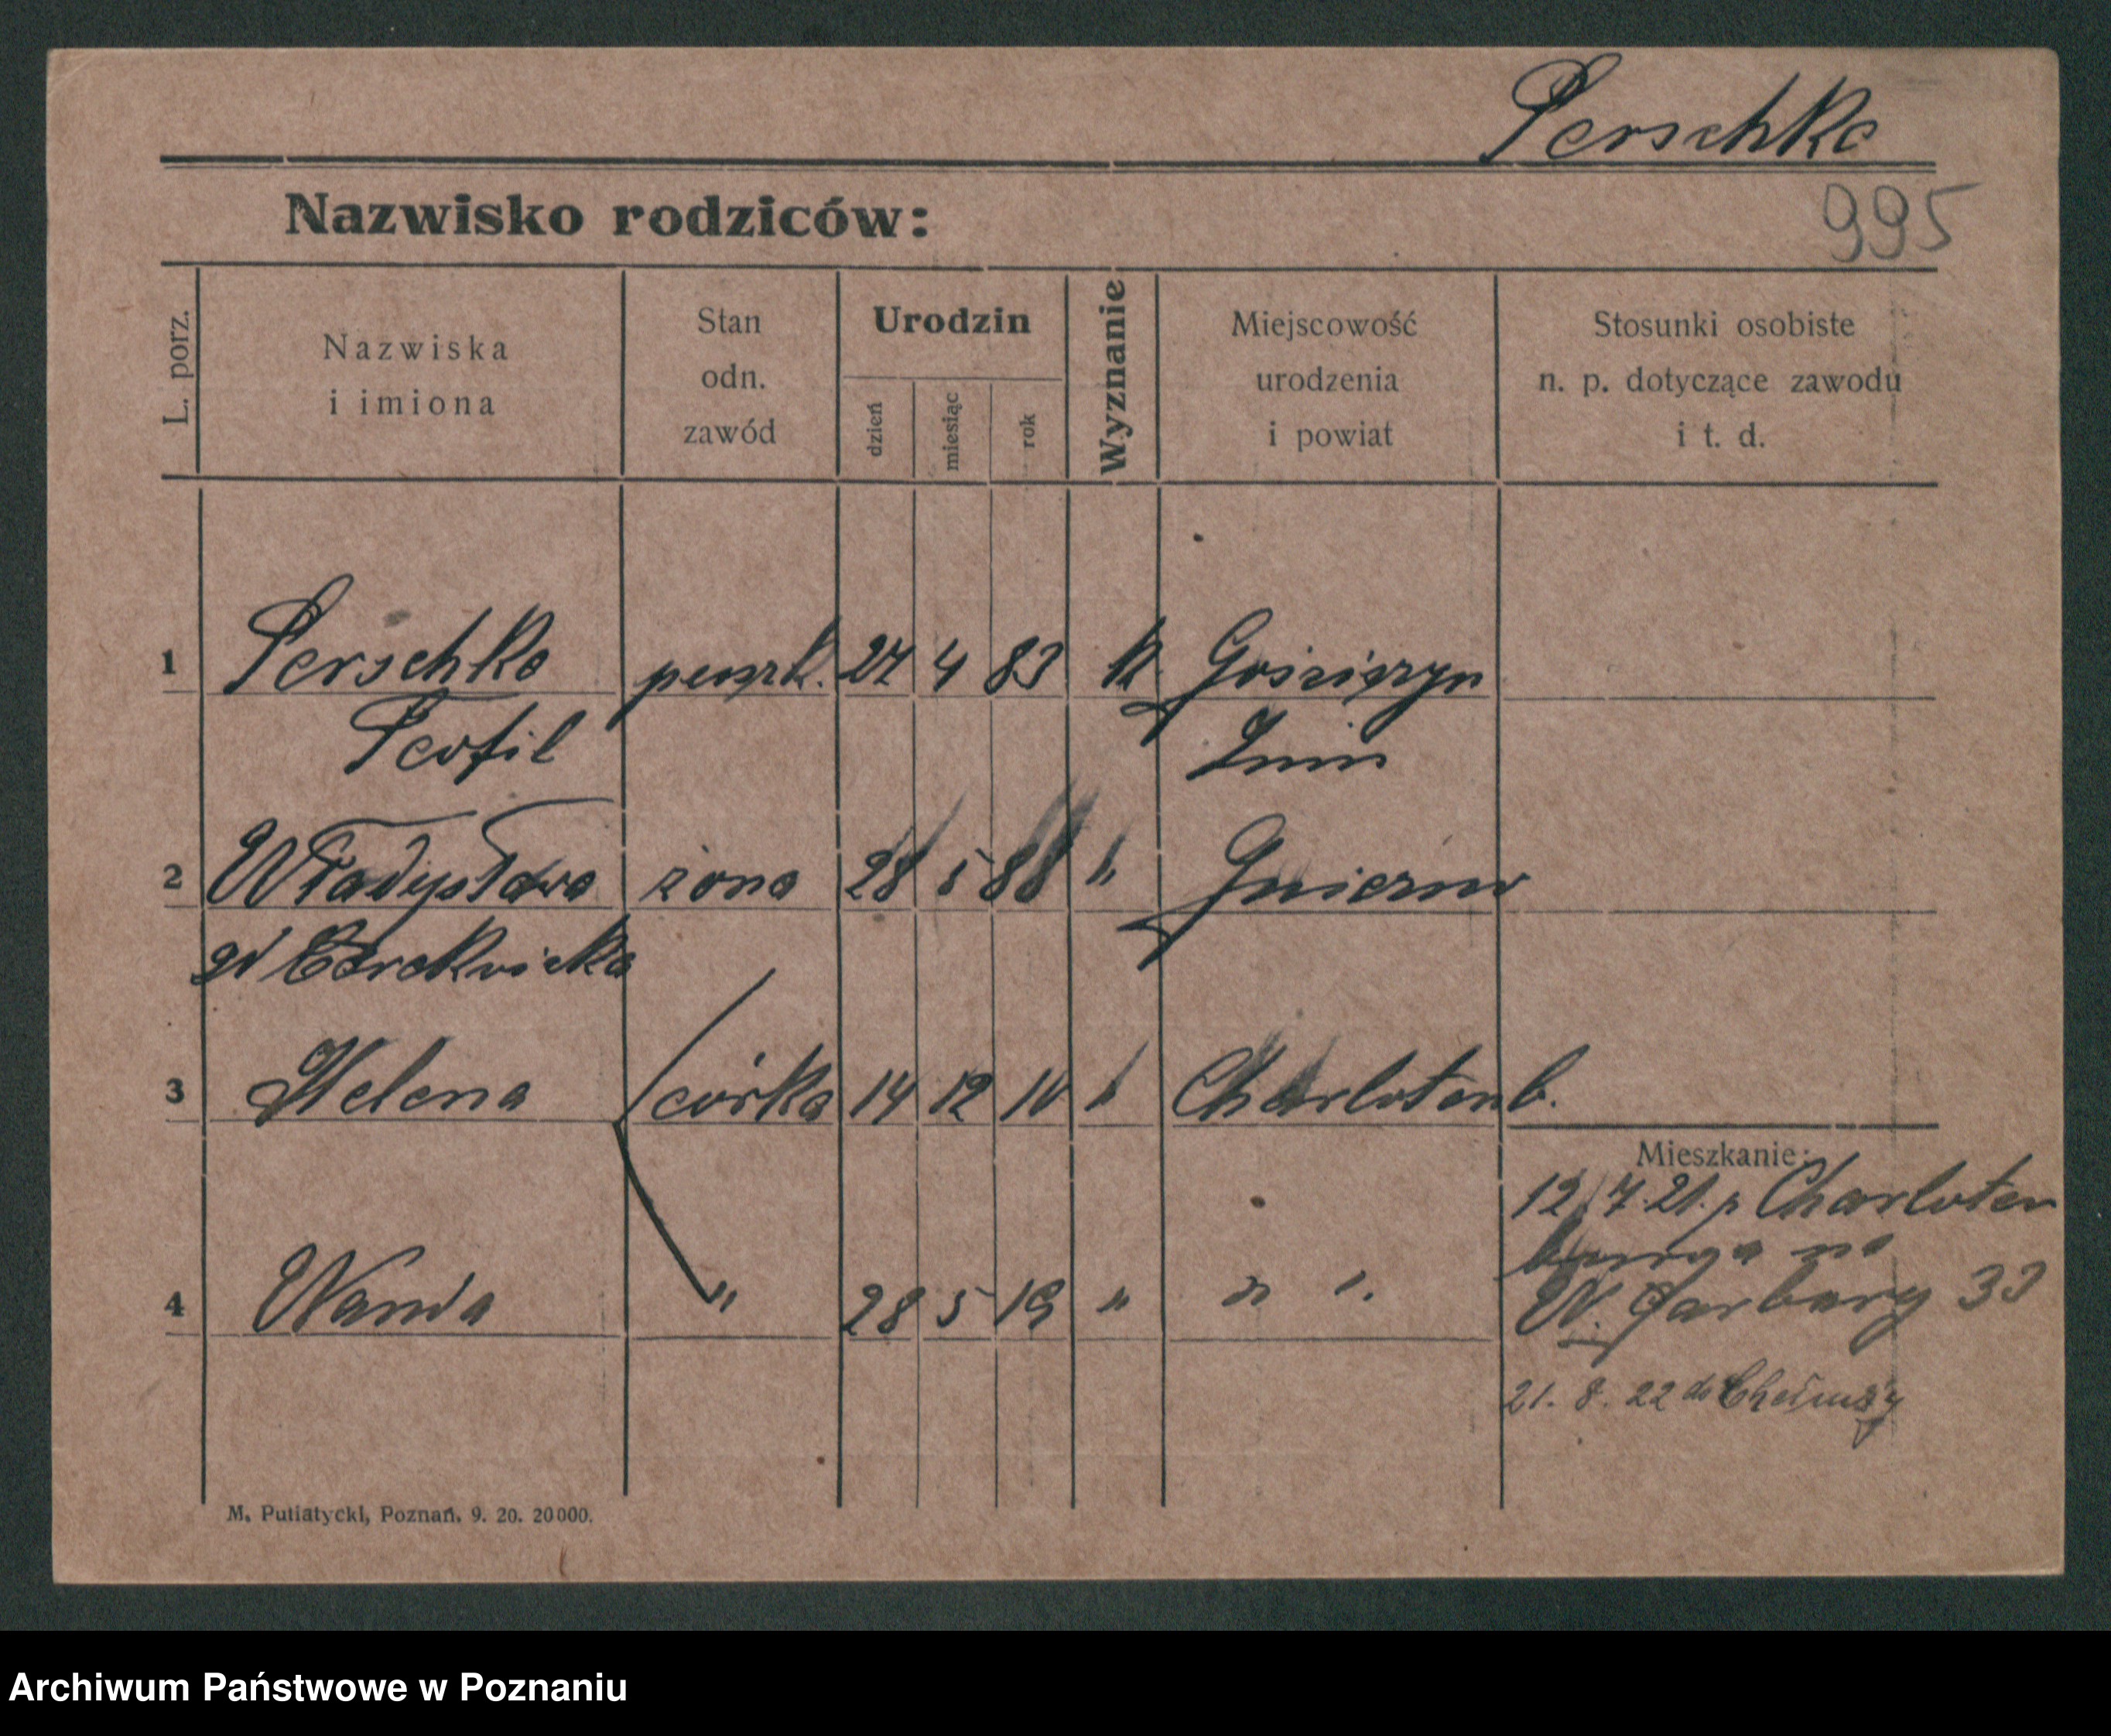 Perschke
995
Nazwisko rodziców:
L. porz.
Nazwiska
i imiona
Stan
odn.
zawód
Urodzin
dzień
miesiąc
rok
Wyznanie
Miejscowość
urodzenia
i powiat
Stosunki osobiste
n. p. dotyczące zawodu
i t. d.
1 Perschke 27 4 83 k Gościeszyn
Teofil Żnin
2 Władysława żona 28 5 88 " Gniezno
3 Helena córka 14 12 10 " Charlotenb.
Mieszkanie:
12/7.21. z Charloten
burga na
W. Garbary 33
4 Wanda " 28 5 19 " " "
21. 8. 22 do Chełmży
M. Putiatycki, Poznań. 9. 20. 20000.
Archiwum Państwowe w Poznaniu